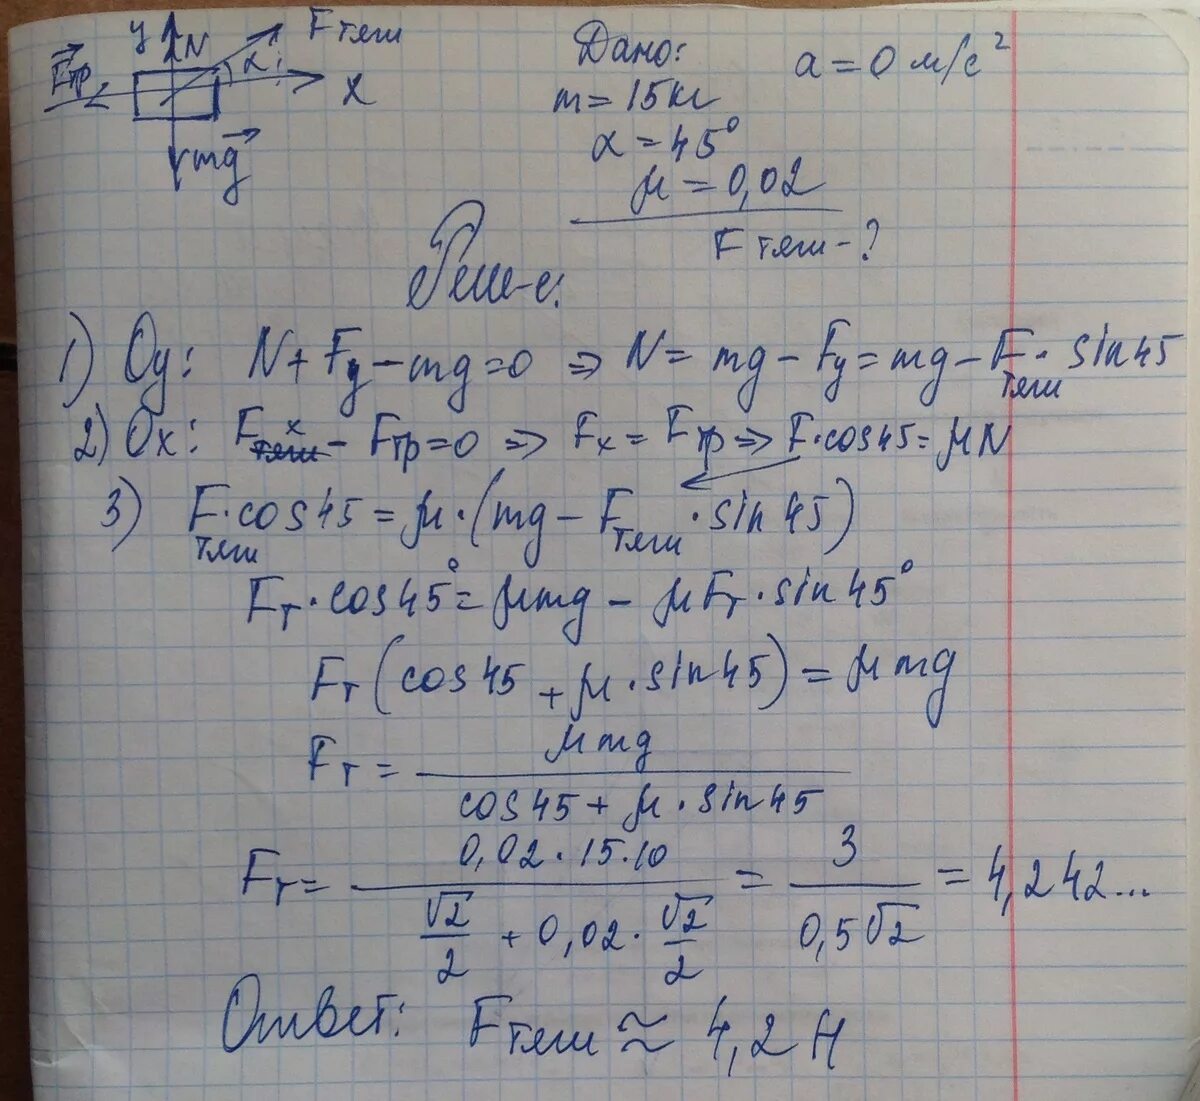 y N F тяги
Fтр α X
mg
Дано: a = 0 м/с²
m = 15кг
α = 45°
μ = 0,02
F тяги - ?
Реш-е:
1) Oy: N + Fy - mg = 0 ⇒ N = mg - Fy = mg - Fтяги · sin45
2) Ox: Fx - Fтр = 0 ⇒ Fx = Fтр ⇒ F·cos45 = μN
3) Fтяги · cos45 = μ · (mg - Fтяги · sin45)
Fт · cos45° = μmg - μFт · sin45°
Fт (cos45 + μ · sin45) = μmg
Fт = μmg / cos45 + μ · sin45
Fт = 0,02 · 15 · 10 / √2/2 + 0,02 · √2/2 = 3 / 0,5√2 = 4,242...
Ответ: Fтяги ≈ 4,2 Н